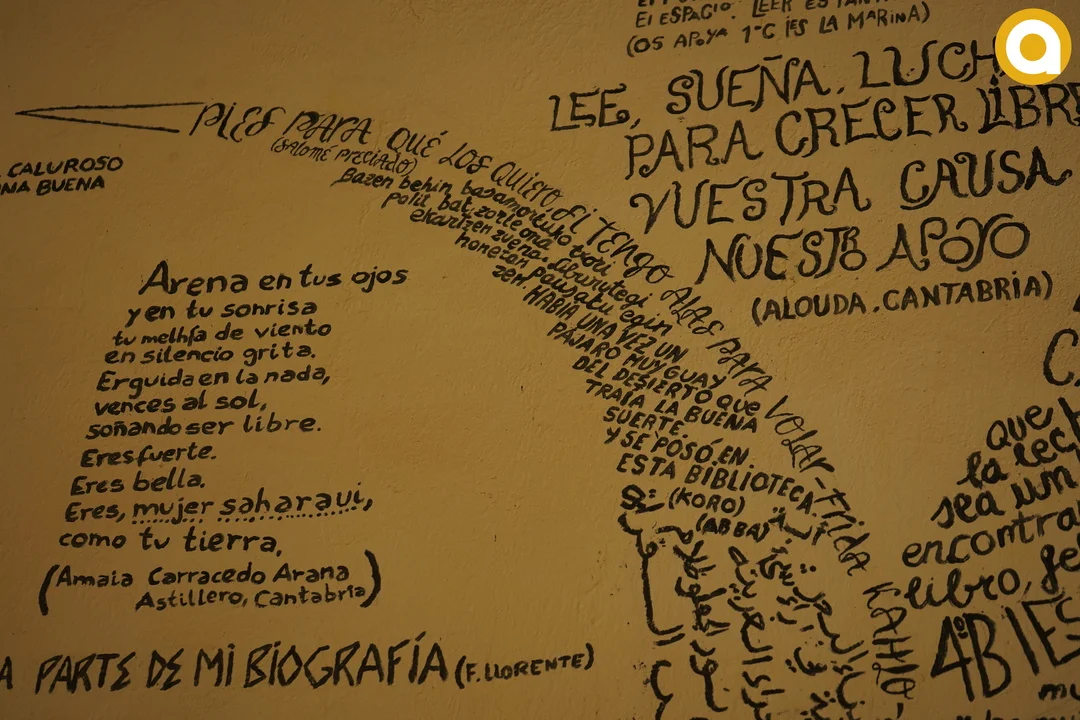 El ESPACIO. LEER ES
(OS APOYA 1ºC IES LA MARINA)
LEE, SUEÑA, LUCH
PARA CRECER LIBRE
VUESTRA CAUSA
NUESTRO APOYO
(ALOUDA. CANTABRIA)
PIES PARA QUÉ LOS QUIERO, SI TENGO ALAS PARA VOLAR-FRIDA KAHLO
(SALOMÉ PRECIADO)
CALUROSO
NA BUENA
Bazen behin basamortuko txori
polit bat, zorte ona
ekartzen zuena. Liburutegi
honetan pausatu egin
zen. HABÍA UNA VEZ UN
PÁJARO MUY GUAY
DEL DESIERTO QUE
TRAÍA LA BUENA
SUERTE.
Y SE POSÓ EN
ESTA BIBLIOTECA
(KORO)
(ABBA)
Arena en tus ojos
y en tu sonrisa
tu melhfa de viento
en silencio grita.
Erguida en la nada,
vences al sol,
soñando ser libre.
Eres fuerte.
Eres bella.
Eres, mujer saharaui,
como tu tierra,
(Amaia Carracedo Arana
Astillero, Cantabria)
A PARTE DE MI BIOGRAFÍA (F. LLORENTE)
que
la lec
sea un
encontra
libro, fe
4ºB IES